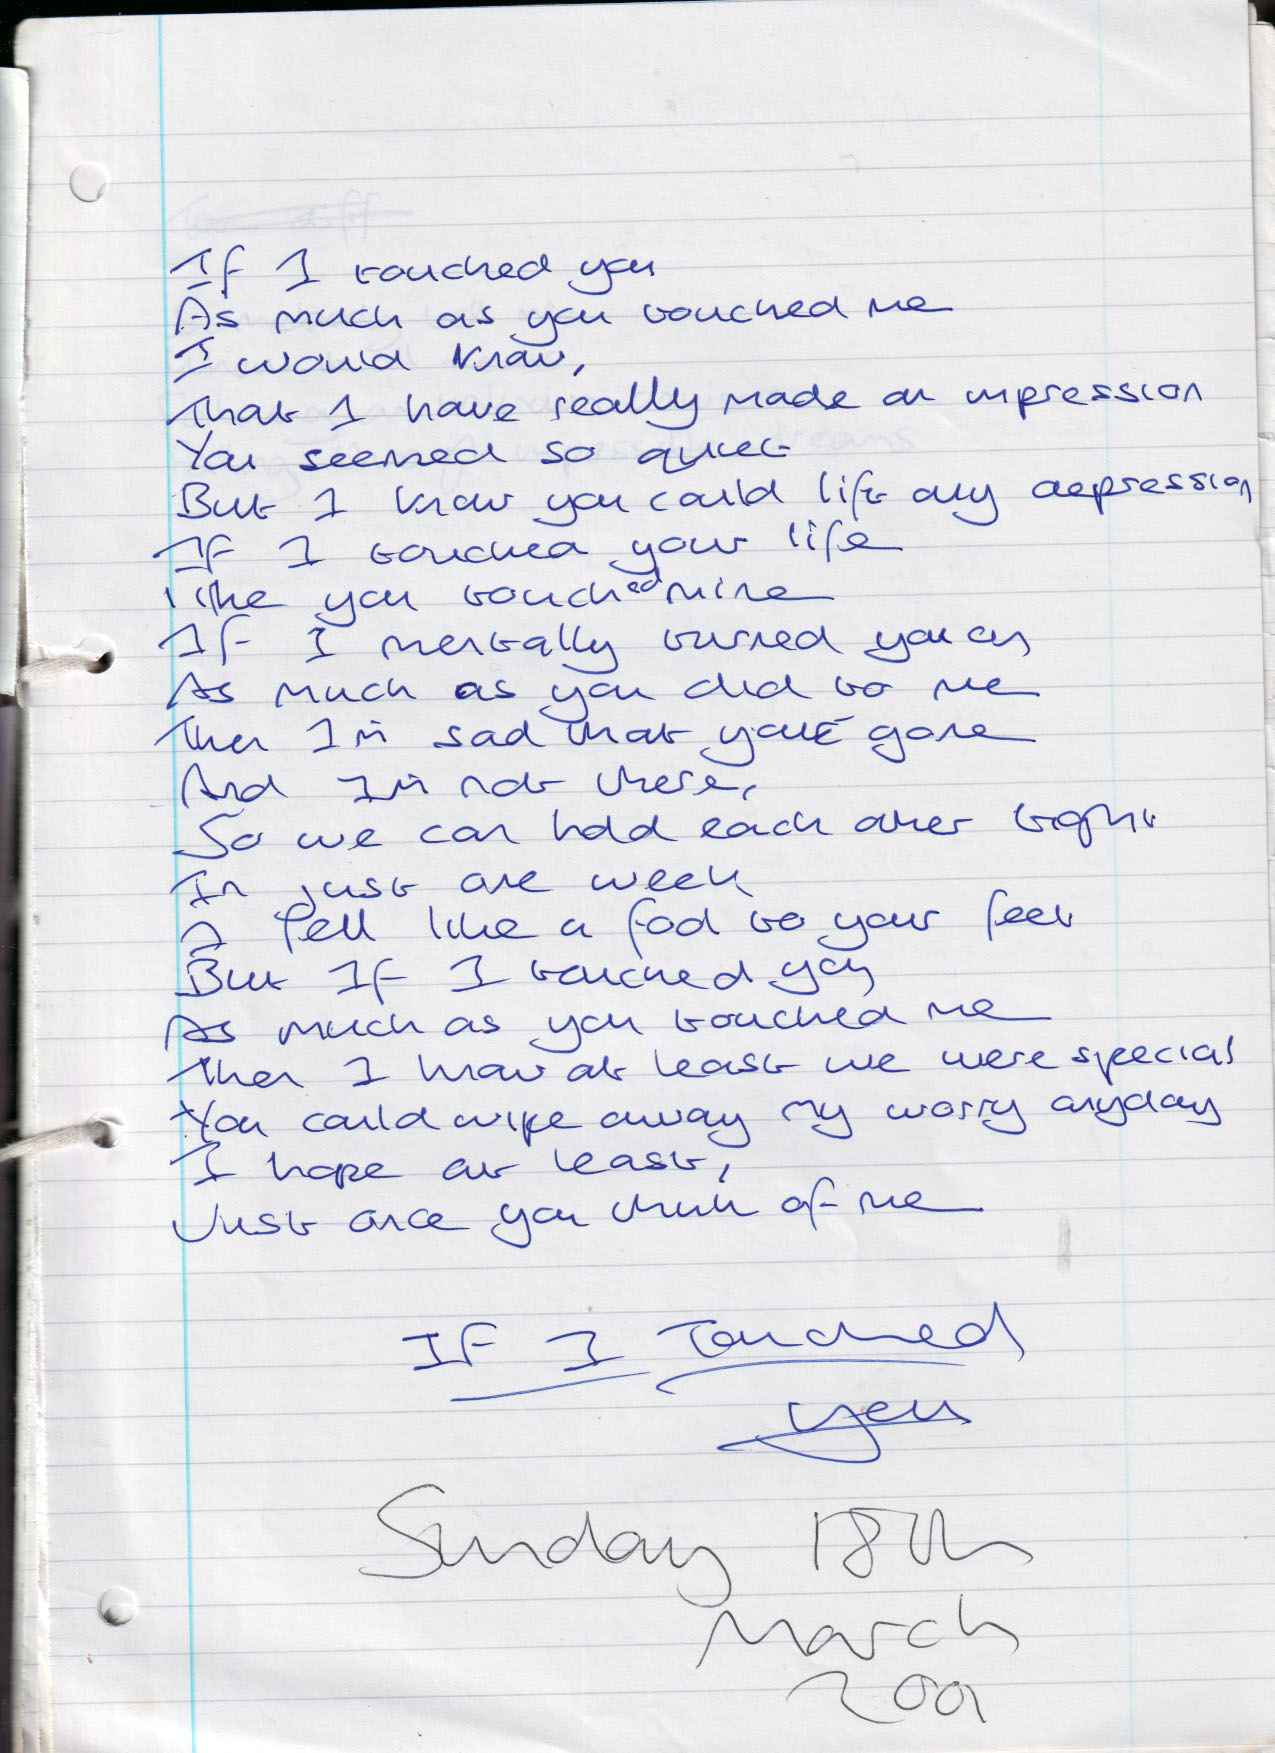 If I touched you
As much as you touched me
I would know,
That I have really made an impression
You seemed so quiet
But I know you could lift any depression
If I touched your life
like you touched mine
If I mentally turned you on
As much as you did to me
Then I'm sad that your gone
And I'm not there,
So we can hold each other tight
In just one week
I fell like a fool to your feet
But If I touched you
As much as you touched me
Then I know at least we were special
You could wipe away my worry anyday
I hope at least,
Just once you think of me
If I Touched
you
Sunday 18th
March
2001